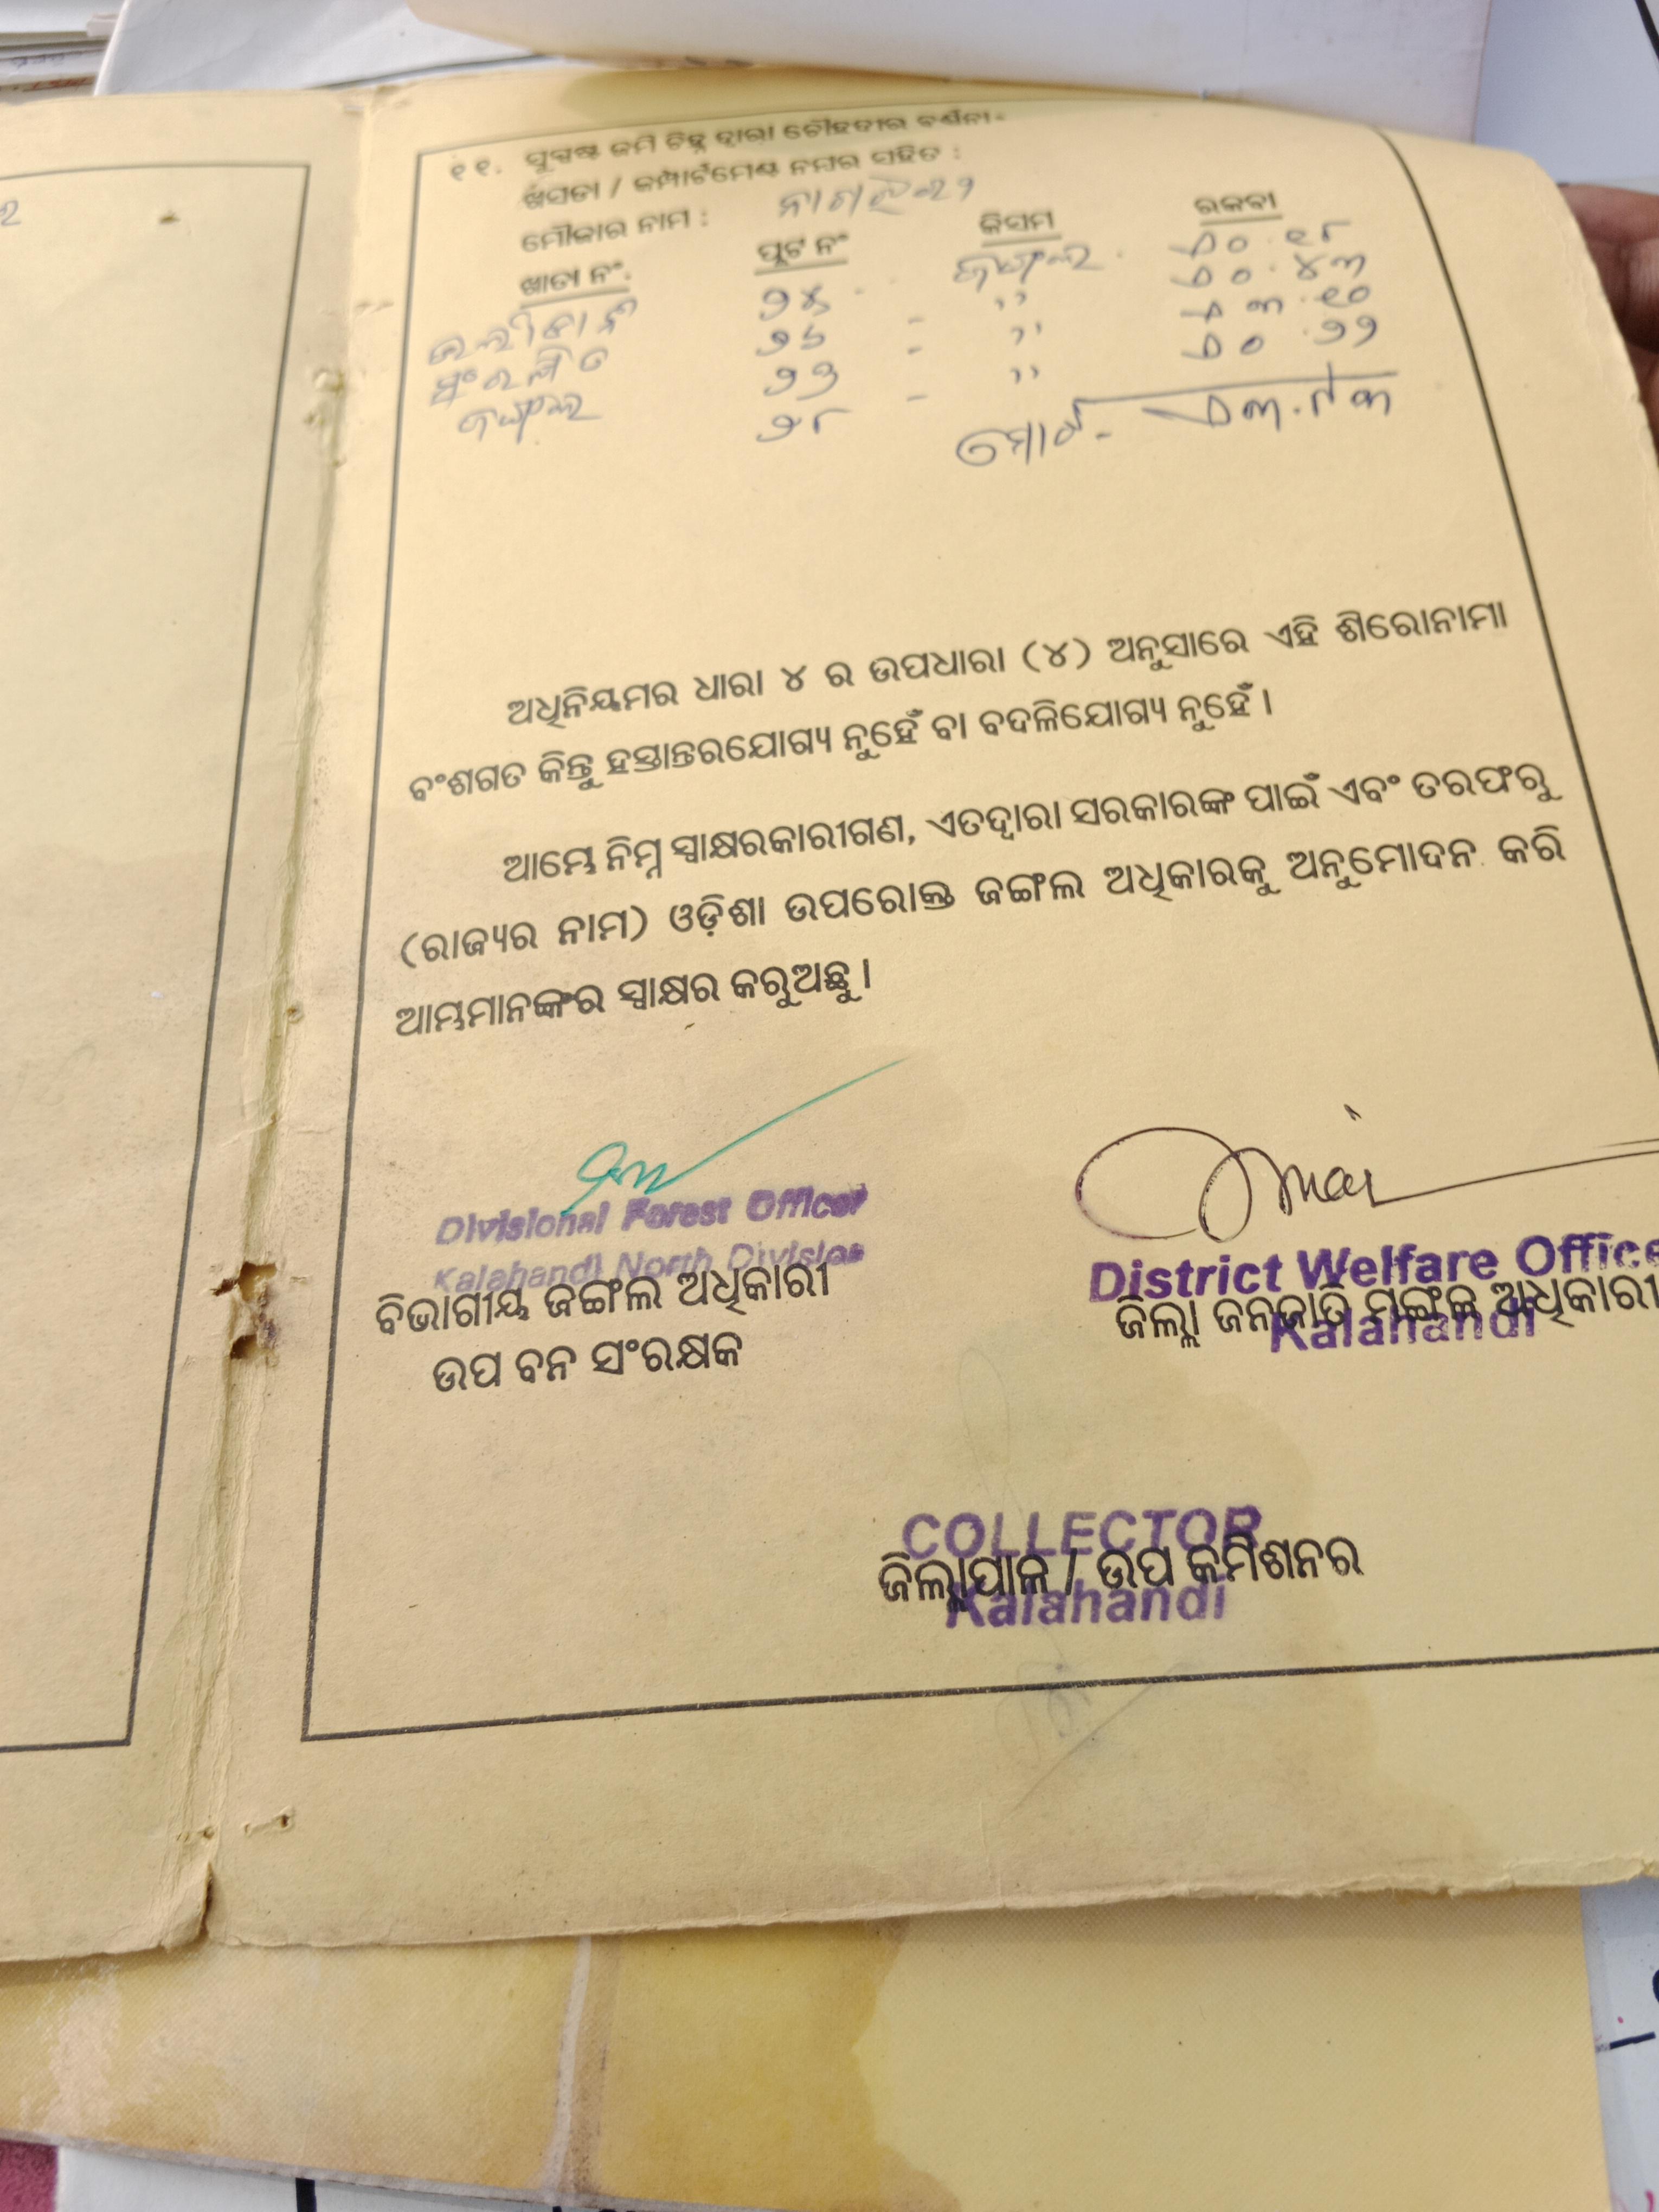 ୧୧. ସୁସ୍ପଷ୍ଟ ଜମି ଚିହ୍ନ ଦ୍ୱାରା ଚୌହଦୀର ବର୍ଣ୍ଣନା-
ଖସଡା / କମ୍ପାର୍ଟମେଣ୍ଟ ନମ୍ବର ସହିତ :
ମୌଜାର ନାମ :
ଖାତା ନଂ. ପ୍ଲଟ ନଂ କିସମ ରକବା
୨୫ ଜଙ୍ଗଲ ୦.୧୮
୨୬ " ୦.୪୩
ସଂରକ୍ଷିତ ୨୭ " ୩.୧୦
ଜଙ୍ଗଲ ୨୮ " ୦.୨୨
ମୋଟ - ୩.୯୩
ଅଧିନିୟମର ଧାରା ୪ ର ଉପଧାରା (୪) ଅନୁସାରେ ଏହି ଶିରୋନାମା
ବଂଶଗତ କିନ୍ତୁ ହସ୍ତାନ୍ତରଯୋଗ୍ୟ ନୁହେଁ ବା ବଦଳିଯୋଗ୍ୟ ନୁହେଁ ।
ଆମ୍ଭେ ନିମ୍ନ ସ୍ୱାକ୍ଷରକାରୀଗଣ, ଏତଦ୍ଦ୍ୱାରା ସରକାରଙ୍କ ପାଇଁ ଏବଂ ତରଫରୁ
(ରାଜ୍ୟର ନାମ) ଓଡ଼ିଶା ଉପରୋକ୍ତ ଜଙ୍ଗଲ ଅଧିକାରକୁ ଅନୁମୋଦନ କରି
ଆମ୍ଭମାନଙ୍କର ସ୍ୱାକ୍ଷର କରୁଅଛୁ ।
Divisional Forest Officer
Kalahandi North Division
ବିଭାଗୀୟ ଜଙ୍ଗଲ ଅଧିକାରୀ
ଉପ ବନ ସଂରକ୍ଷକ
District Welfare Office
ଜିଲ୍ଲା ଜନଜାତି ମଙ୍ଗଳ ଅଧିକାରୀ
Kalahandi
COLLECTOR
ଜିଲ୍ଲାପାଳ / ଉପ କମିଶନର
Kalahandi